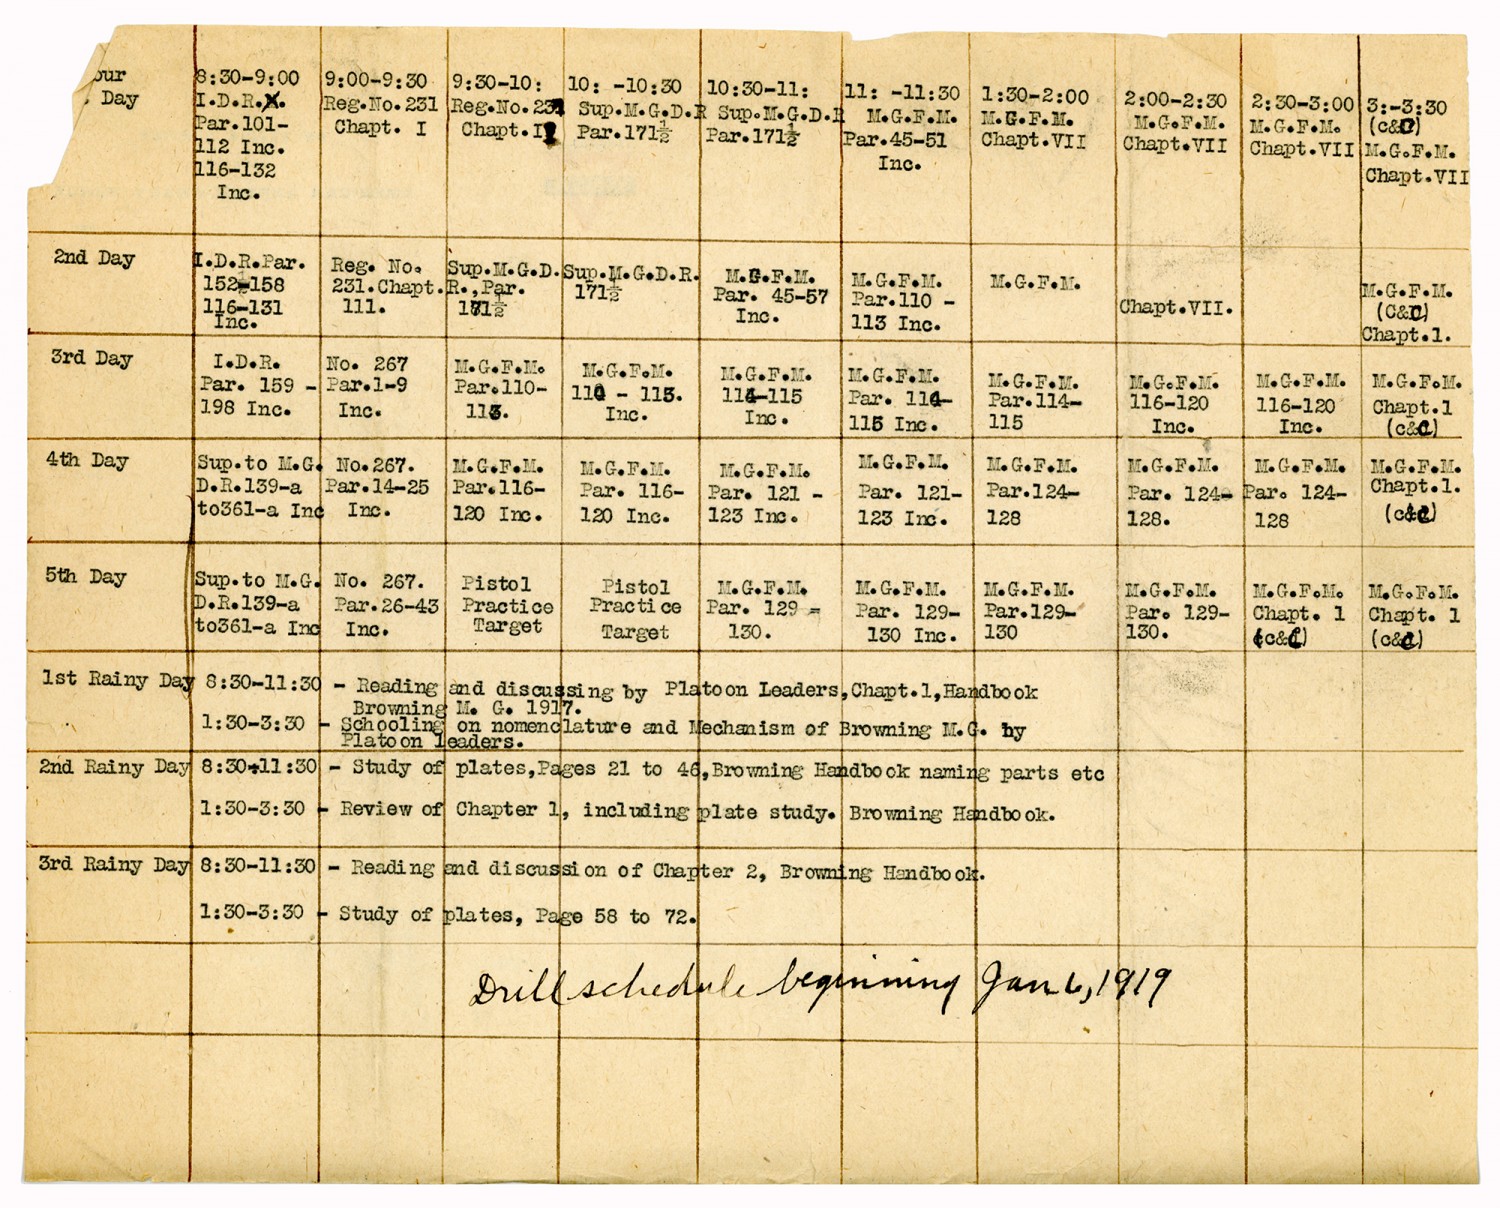 our
Day
8:30-9:00
I.D.R.
Par.101-
112 Inc.
116-132
Inc.
9:00-9:30
Reg.No.231
Chapt. I
9:30-10:
Reg.No.231
10: -10:30
Sup.M.G.D.R
Par.171½
10:30-11:
Sup.M.G.D.R
Par.171½
11: -11:30
M.G.F.M.
Par.45-51
Inc.
1:30-2:00
M.G.F.M.
Chapt.VII
2:00-2:30
M.G.F.M.
Chapt.VII
2:30-3:00
M.G.F.M.
Chapt.VII
3:-3:30
(c&C)
M.G.F.M.
Chapt.VII
2nd Day
I.D.R.Par.
152-158
116-131
Inc.
Reg. No.
231.Chapt.
111.
Sup.M.G.D.
R.,Par.
171½
Sup.M.G.D.R.
171½
M.G.F.M.
Par. 45-57
Inc.
M.G.F.M.
Par.110 -
113 Inc.
M.G.F.M.
Chapt.VII.
M.G.F.M.
(C&C)
Chapt.1.
3rd Day
I.D.R.
Par. 159 -
198 Inc.
No. 267
Par.1-9
Inc.
M.G.F.M.
Par.110-
113.
M.G.F.M.
110 - 113.
Inc.
M.G.F.M.
114-115
Inc.
M.G.F.M.
Par. 114-
115 Inc.
M.G.F.M.
Par.114-
115
M.G.F.M.
116-120
Inc.
M.G.F.M.
116-120
Inc.
M.G.F.M.
Chapt.1
(c&C)
4th Day
Sup.to M.G.
D.R.139-a
to361-a Inc
No.267.
Par.14-25
Inc.
M.G.F.M.
Par.116-
120 Inc.
M.G.F.M.
Par. 116-
120 Inc.
M.G.F.M.
Par. 121 -
123 Inc.
M.G.F.M.
Par. 121-
123 Inc.
M.G.F.M.
Par.124-
128
M.G.F.M.
Par. 124-
128.
M.G.F.M.
Par. 124-
128
M.G.F.M.
Chapt.1.
(c&C)
5th Day
Sup.to M.G.
D.R.139-a
to361-a Inc
No. 267.
Par.26-43
Inc.
Pistol
Practice
Target
Pistol
Practice
Target
M.G.F.M.
Par. 129 -
130.
M.G.F.M.
Par. 129-
130 Inc.
M.G.F.M.
Par.129-
130
M.G.F.M.
Par. 129-
130.
M.G.F.M.
Chapt. 1
(c&C)
M.G.F.M.
Chapt. 1
(c&C)
1st Rainy Day 8:30-11:30 - Reading and discussing by Platoon Leaders,Chapt.1,Handbook
Browning M. G. 1917.
1:30-3:30 - Schooling on nomenclature and Mechanism of Browning M.G. by
Platoon leaders.
2nd Rainy Day 8:30-11:30 - Study of plates,Pages 21 to 46,Browning Handbook naming parts etc
1:30-3:30 - Review of Chapter 1, including plate study. Browning Handbook.
3rd Rainy Day 8:30-11:30 - Reading and discussion of Chapter 2, Browning Handbook.
1:30-3:30 - Study of plates, Page 58 to 72.
Drill schedule beginning Jan 6, 1919